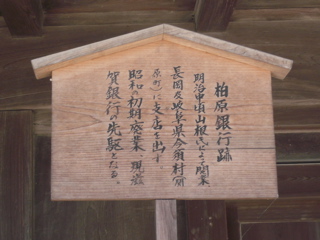 柏原銀行跡
明治中頃山根氏によって開業
長岡及岐阜県今須村(関
原町)に支店を出す。
昭和の初期廃業、現滋
賀銀行の先駆となる。